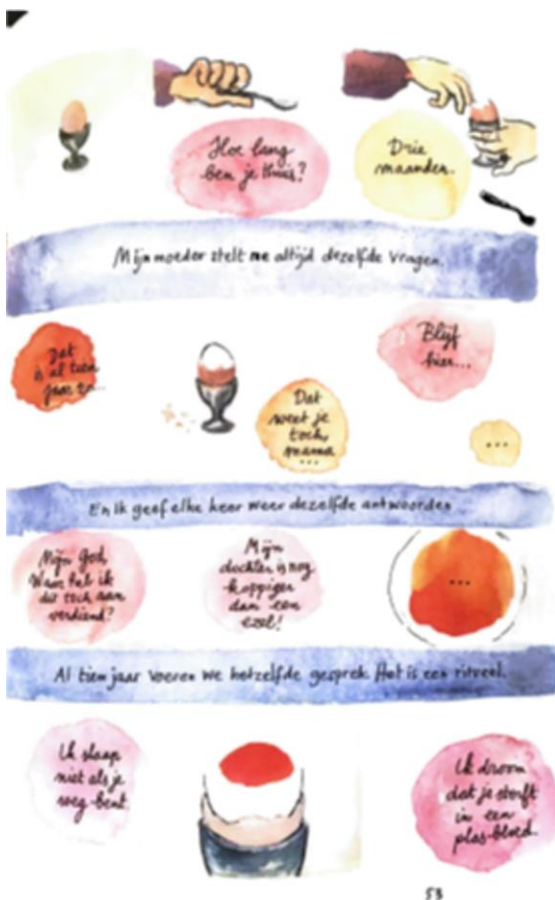 Hoe lang
ben je thuis?
Drie
maanden.
Mijn moeder stelt me altijd dezelfde vragen.
Dat
is al tien
jaar zo...
Blijf
hier...
Dat
weet je
toch,
mama
...
...
En ik geef elke keer weer dezelfde antwoorden
Mijn God,
Waar heb ik
dit toch aan
verdiend?
Mijn
dochter is nog
koppiger
dan een
ezel!
...
Al tien jaar voeren we hetzelfde gesprek. Het is een ritueel.
Ik slaap
niet als je
weg bent.
Ik droom
dat je sterft
in een
plas bloed.
53